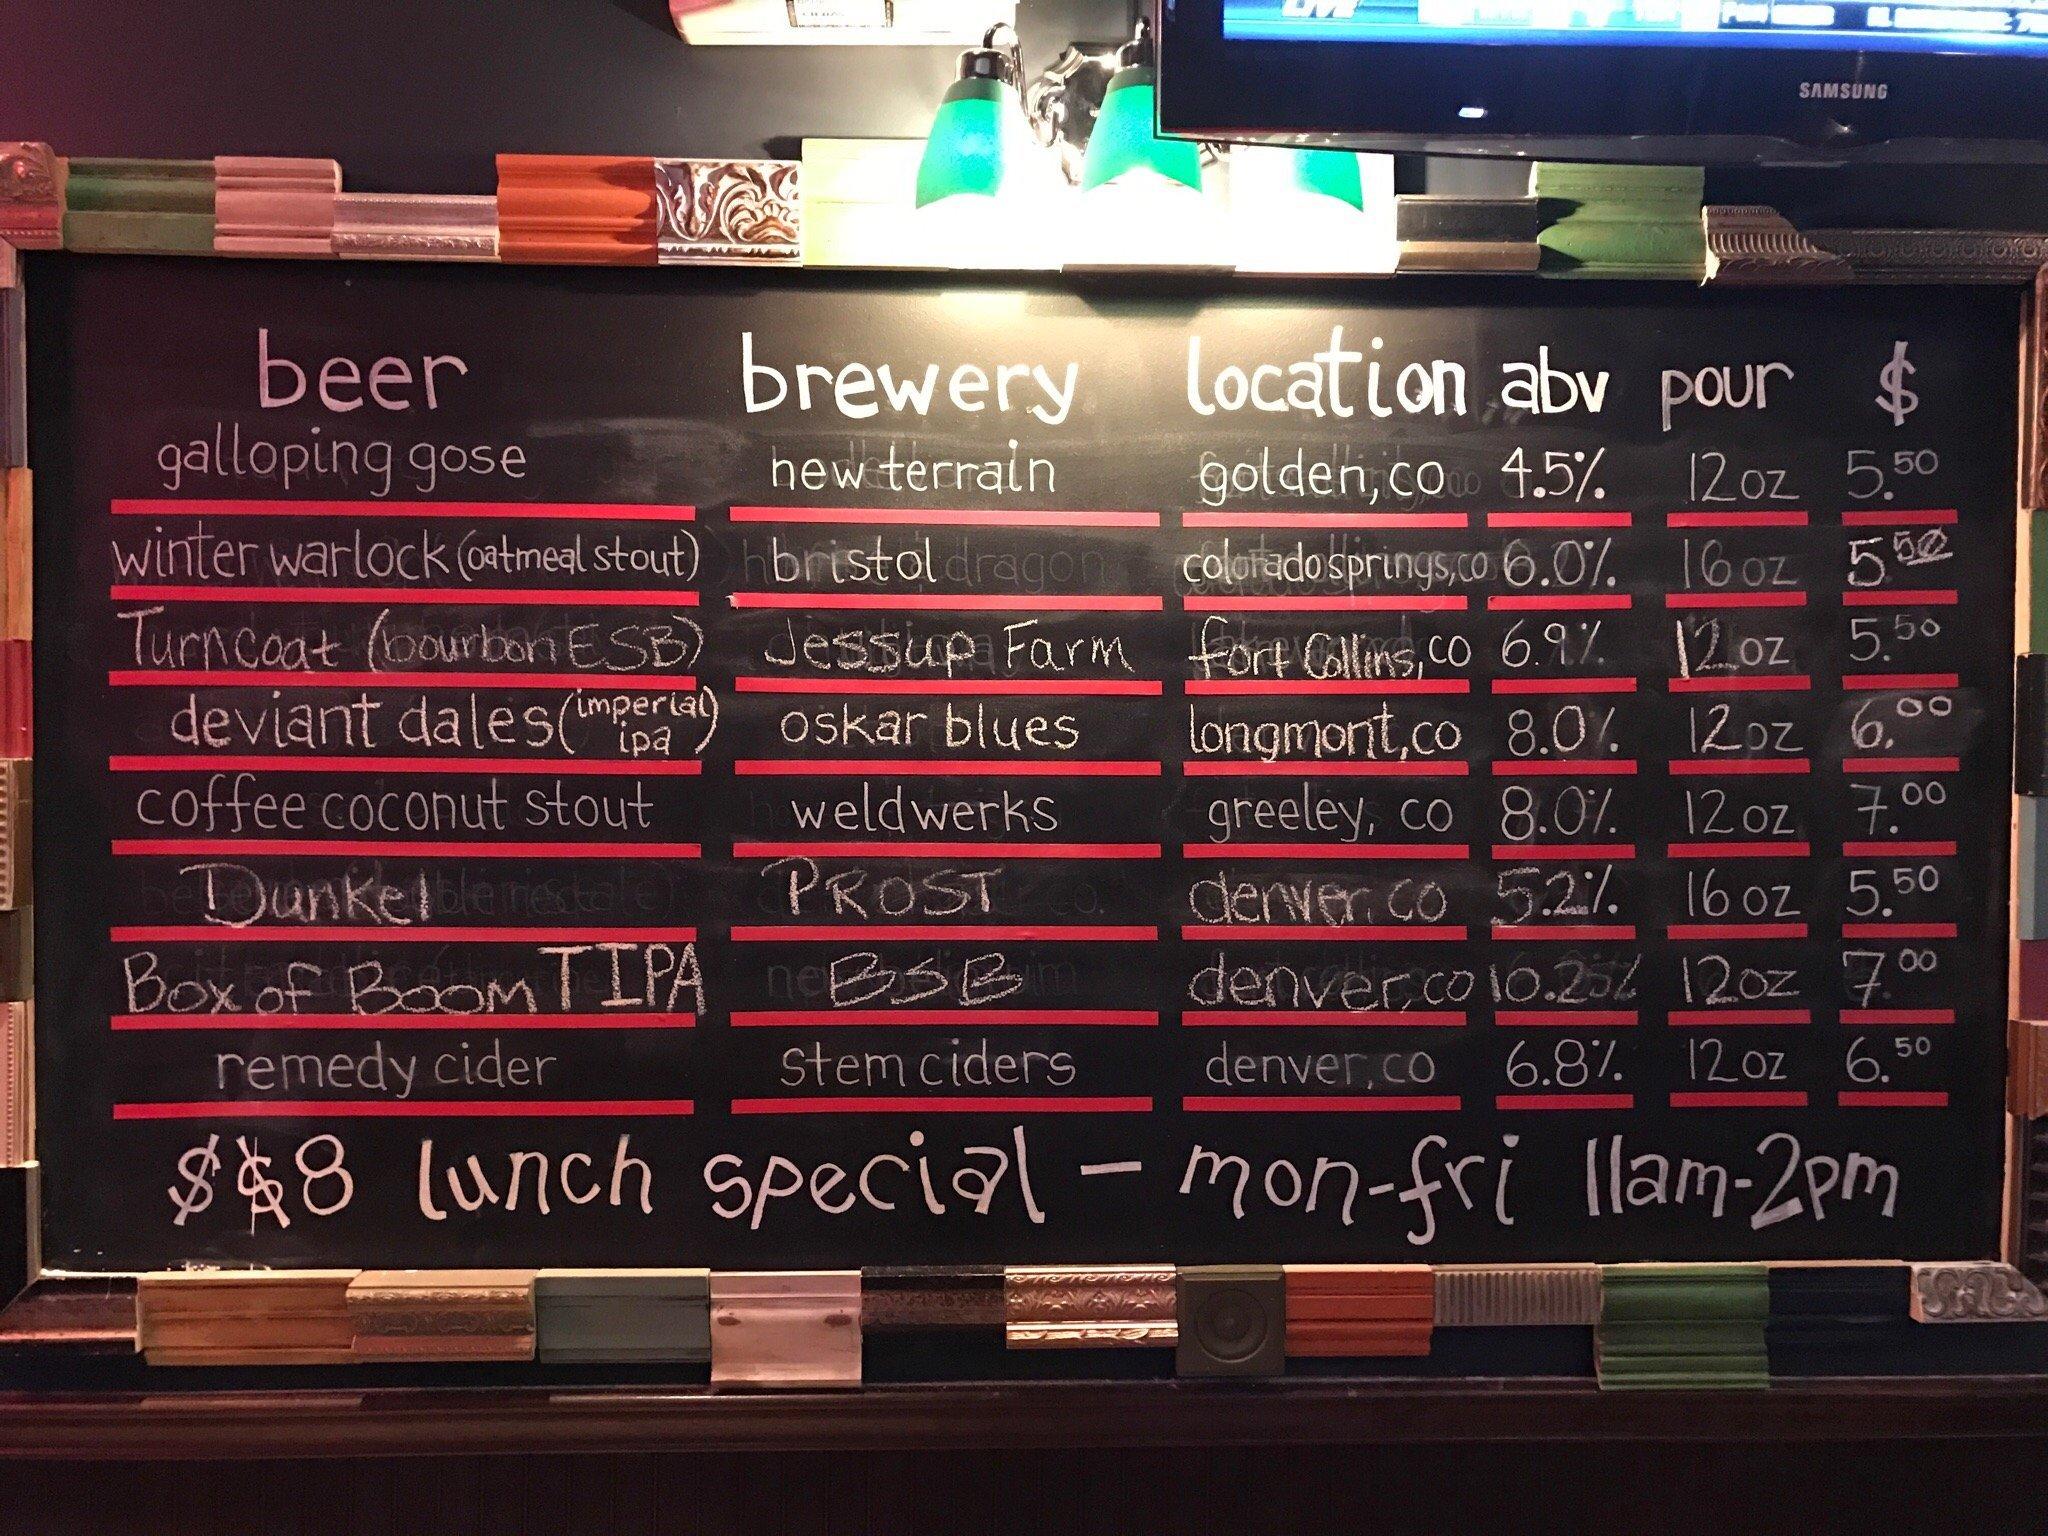 LIVE
SAMSUNG
beer brewery location abv pour $
galloping gose new terrain golden, co 4.5% 12oz 5.50
winter warlock (oatmeal stout) bristol colorado springs, co 6.0% 16oz 5.50
Turncoat (bourbon ESB) Jessup Farm fort Collins, co 6.9% 12oz 5.50
deviant dales (imperial ipa) oskar blues longmont, co 8.0% 12oz 6.00
coffee coconut stout weldwerks greeley, co 8.0% 12oz 7.00
Dunkel PROST denver, co 5.2% 16oz 5.50
Box of Boom TIPA BSB denver, co 10.2% 12oz 7.00
remedy cider stem ciders denver, co 6.8% 12oz 6.50
$$8 lunch special - mon-fri 11am-2pm